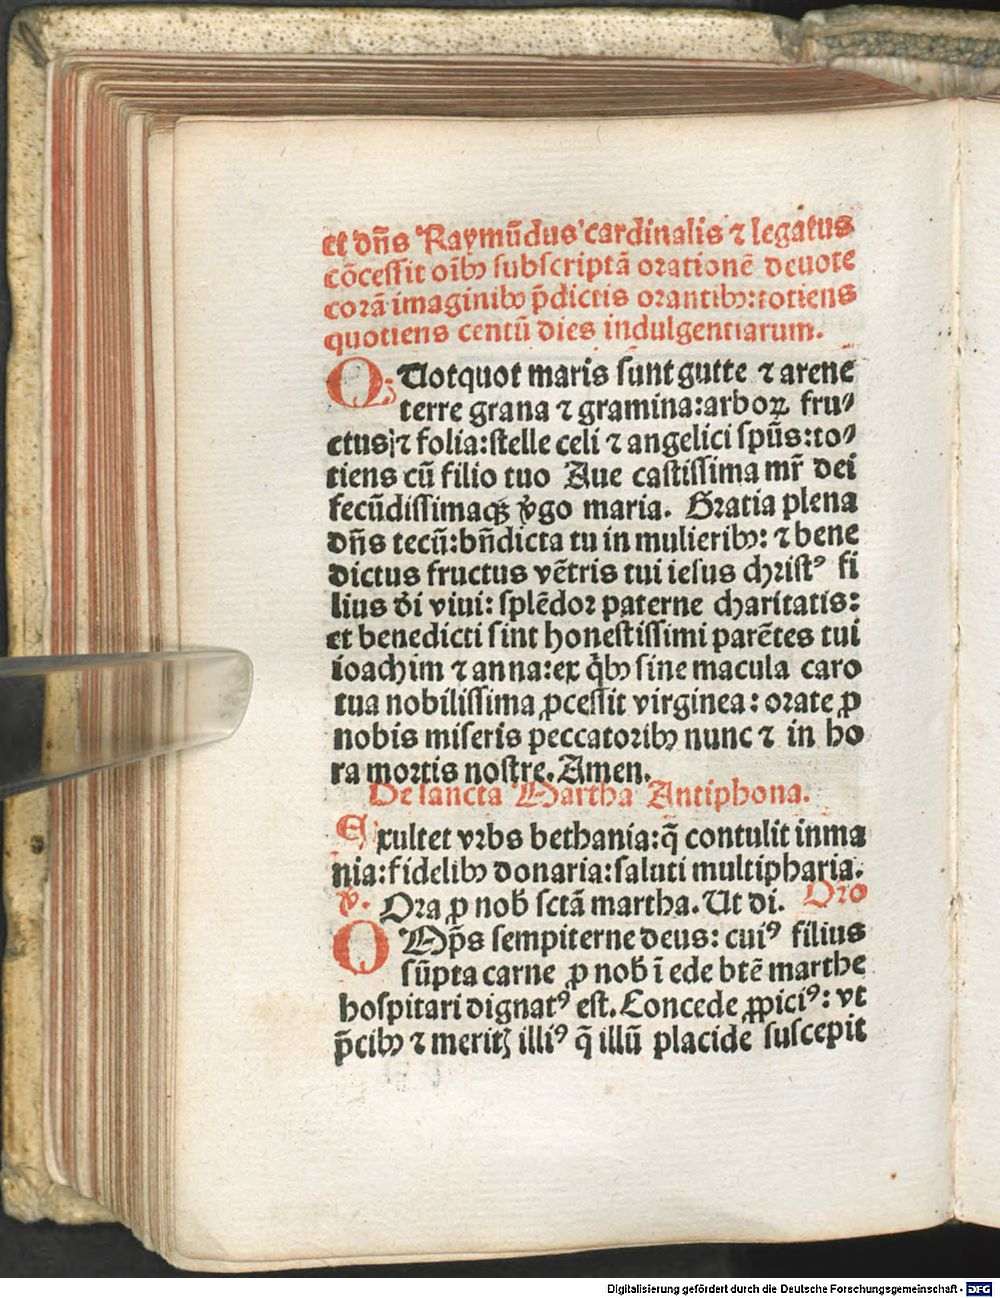 et dn̄s Raymūdus cardinalis ⁊ legatus
cōcessit oībꝰ subscriptā orationē deuote
corā imaginibꝰ p̄dictis orantibꝰ: totiens
quotiens centū dies indulgentiarum.
QUotquot maris sunt gutte ⁊ arene
terre grana ⁊ gramina: arboꝝ fru⸗
ctus ⁊ folia: stelle celi ⁊ angelici spūs: to⸗
tiens cū filio tuo Aue castissima mr̄ dei
fecūdissimaqꝫ v̄go maria. Gratia plena
dn̄s tecū: bn̄dicta tu in mulieribꝰ: ⁊ bene
dictus fructus vētris tui iesus christꝰ fi
lius d̄i viui: splēdor paterne charitatis:
et benedicti sint honestissimi parētes tui
ioachim ⁊ anna: ex q̄bꝰ sine macula caro
tua nobilissima ꝓcessit virginea: orate ꝓ
nobis miseris peccatoribꝰ nunc ⁊ in ho
ra mortis nostre. Amen.
De sancta Martha Antiphona.
Exultet vrbs bethania: q̄ contulit inma
nia: fidelibꝰ donaria: saluti multipharia.
v̄. Ora ꝓ nob̄ sctā martha. Ut di. Oro
OMp̄s sempiterne deus: cuiꝰ filius
sūpta carne ꝓ nob̄ ī ede btē marthe
hospitari dignatꝰ est. Concede ꝓpiciꝰ: vt
p̄cibꝰ ⁊ meritꝭ illiꝰ q̄ illū placide suscepit
Digitalisierung gefördert durch die Deutsche Forschungsgemeinschaft - DFG